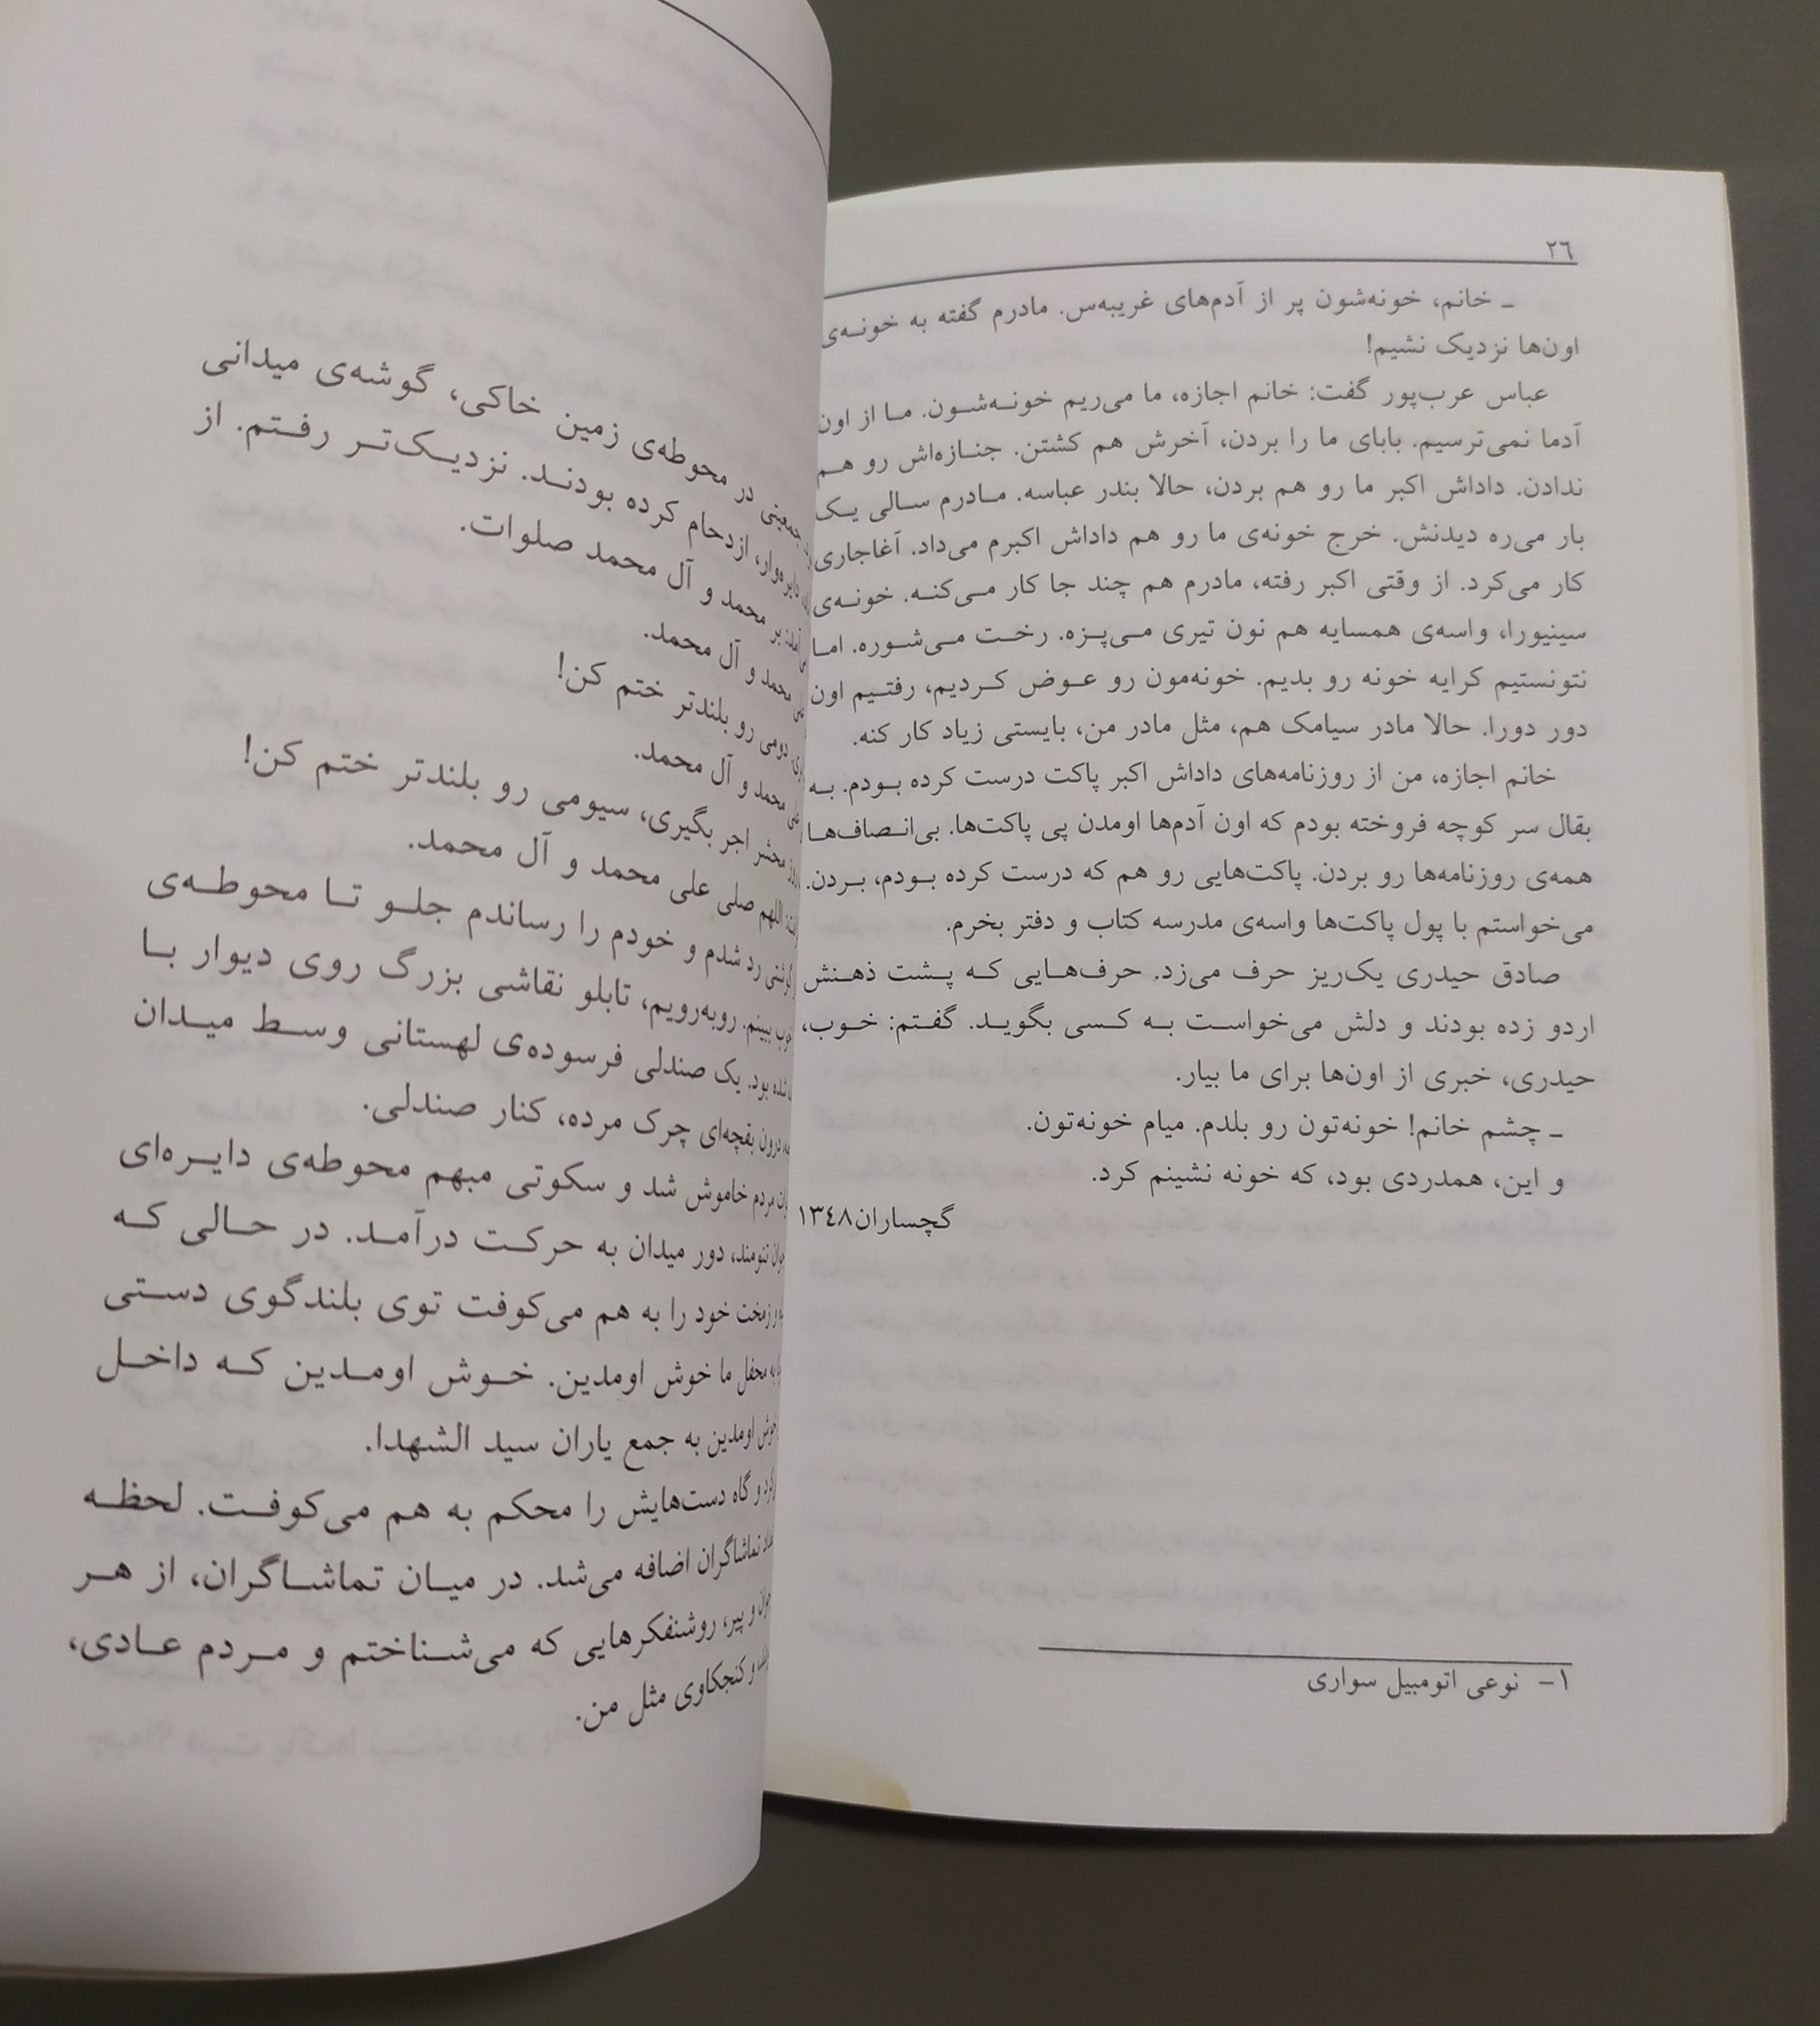 ٢٦
ـ خانم، خونه‌شون پر از آدم‌های غریبه‌س. مادرم گفته به خونه‌ی
اون‌ها نزدیک نشیم!
عباس عرب‌پور گفت: خانم اجازه، ما می‌ریم خونه‌شون. ما از اون
آدما نمی‌ترسیم. بابای ما را بردن، آخرش هم کشتن. جنازه‌اش رو هم
ندادن. داداش اکبر ما رو هم بردن، حالا بندر عباسه. مادرم سالی یک
بار می‌ره دیدنش. خرج خونه‌ی ما رو هم داداش اکبرم می‌داد. آغاجاری
کار می‌کرد. از وقتی اکبر رفته، مادرم هم چند جا کار می‌کنه. خونه‌ی
سینیورا، واسه‌ی همسایه هم نون تیری می‌پزه. رخت می‌شوره. اما
نتونستیم کرایه خونه رو بدیم. خونه‌مون رو عوض کردیم، رفتیم اون
دور دورا. حالا مادر سیامک هم، مثل مادر من، بایستی زیاد کار کنه.
خانم اجازه، من از روزنامه‌های داداش اکبر پاکت درست کرده بودم. به
بقال سر کوچه فروخته بودم که اون آدم‌ها اومدن پی پاکت‌ها. بی‌انصاف‌ها
همه‌ی روزنامه‌ها رو بردن. پاکت‌هایی رو هم که درست کرده بودم، بردن.
می‌خواستم با پول پاکت‌ها واسه‌ی مدرسه کتاب و دفتر بخرم.
صادق حیدری یک‌ریز حرف می‌زد. حرف‌هایی که پشت ذهنش
اردو زده بودند و دلش می‌خواست به کسی بگوید. گفتم: خوب،
حیدری، خبری از اون‌ها برای ما بیار.
ـ چشم خانم! خونه‌تون رو بلدم. میام خونه‌تون.
و این، همدردی بود، که خونه نشینم کرد.
گچساران١٣٤٨
١- نوعی اتومبیل سواری
جمعیتی در محوطه‌ی زمین خاکی، گوشه‌ی میدانی
دایره‌وار، ازدحام کرده بودند. نزدیک‌تر رفتم. از
بر محمد و آل محمد صلوات.
محمد و آل محمد.
دومی رو بلندتر ختم کن!
علی محمد و آل محمد.
روز محشر اجر بگیری، سیومی رو بلندتر ختم کن!
اللهم صلی علی محمد و آل محمد.
رد شدم و خودم را رساندم جلو تا محوطه‌ی
خوب ببینم. روبه‌رویم، تابلو نقاشی بزرگ روی دیوار با
شده بود. یک صندلی فرسوده‌ی لهستانی وسط میدان
درون بقچه‌ای چرک مرده، کنار صندلی.
مردم خاموش شد و سکوتی مبهم محوطه‌ی دایره‌ای
جوان تنومند، دور میدان به حرکت درآمد. در حالی که
و زمخت خود را به هم می‌کوفت توی بلندگوی دستی
به محفل ما خوش اومدین. خوش اومدین که داخل
خوش اومدین به جمع یاران سید الشهدا.
و گاه دست‌هایش را محکم به هم می‌کوفت. لحظه
تماشاگران اضافه می‌شد. در میان تماشاگران، از هر
جوان و پیر، روشنفکرهایی که می‌شناختم و مردم عادی،
و کنجکاوی مثل من.